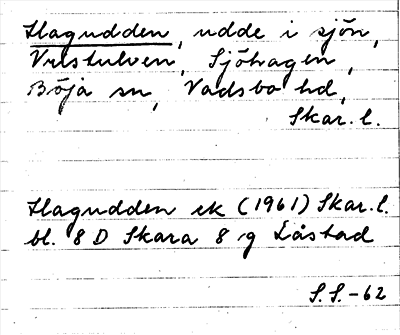 Hagudden, udde i sjön,
Vristulven, Sjöhagen,
Böja sn, Vadsbo hd,
Skar. l.
Hagudden ek (1961) Skar. l.
bl. 8 D Skara 8 g Låstad
S.S.-62